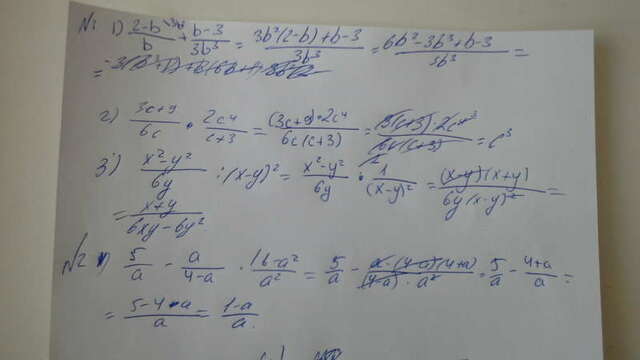 №1 1) (2-b)/b + (b-3)/3b³ = (3b²(2-b)+b-3)/3b³ = (6b²-3b³+b-3)/3b³ =
=
2) (3c+9)/6c · 2c⁴/(c+3) = ((3c+9)·2c⁴)/(6c(c+3)) = (3(c+3)·2c⁴)/(6c(c+3)) = c³
3) (x²-y²)/6y : (x-y)² = (x²-y²)/6y · 1/(x-y)² = ((x-y)(x+y))/(6y(x-y)²) =
= (x+y)/(6xy-6y²)
№2 5/a - a/(4-a) · (16-a²)/a² = 5/a - (a·(4-a)(4+a))/((4-a)·a²) = 5/a - (4+a)/a =
= (5-4-a)/a = (1-a)/a.